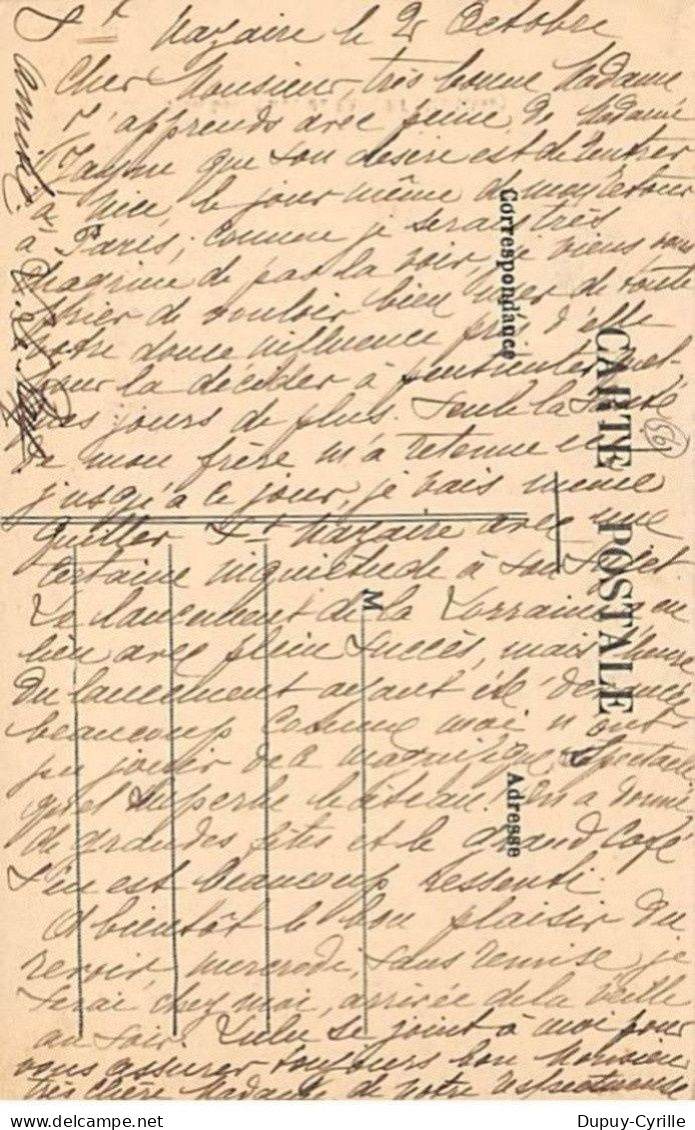 St Nazaire le 2 Octobre
Cher Monsieur, très bonne Madame
J'apprends avec peine de Madame
que son desire est de rentrer
à Nice, le jour même de mon retour
à Paris; comme je serais très
chagrine de pas la voir, je viens vous
prier de vouloir bien user de toute
votre douce influence près d'elle
pour la décider à patienter quel-
ques jours de plus. Seule la santé
de mon frère m'a retenue ici
jusqu'à ce jour, je vais même
quitter St Nazaire avec une
certaine inquietude à son sujet.
Le lancement de la Lorraine a eu
lieu avec plein succès, mais l'heure
du lancement ayant été devancée
beaucoup comme moi n'ont
pu jouir de ce magnifique spectacle
quel superbe bâteau. On a donné
de grandes fêtes et le Grand Café
s'en est beaucoup ressenti.
A bientôt le bon plaisir du
revoir, mercredi, sans remise, je
serai chez moi, arrivée de la veille
au soir. Lulu se joint à moi pour
vous assurer toujours bon Monsieur
très chère Madame de notre respectueuse
amitié.
Correspondance
CARTE POSTALE
Adresse
M
56
Dupuy-Cyrille